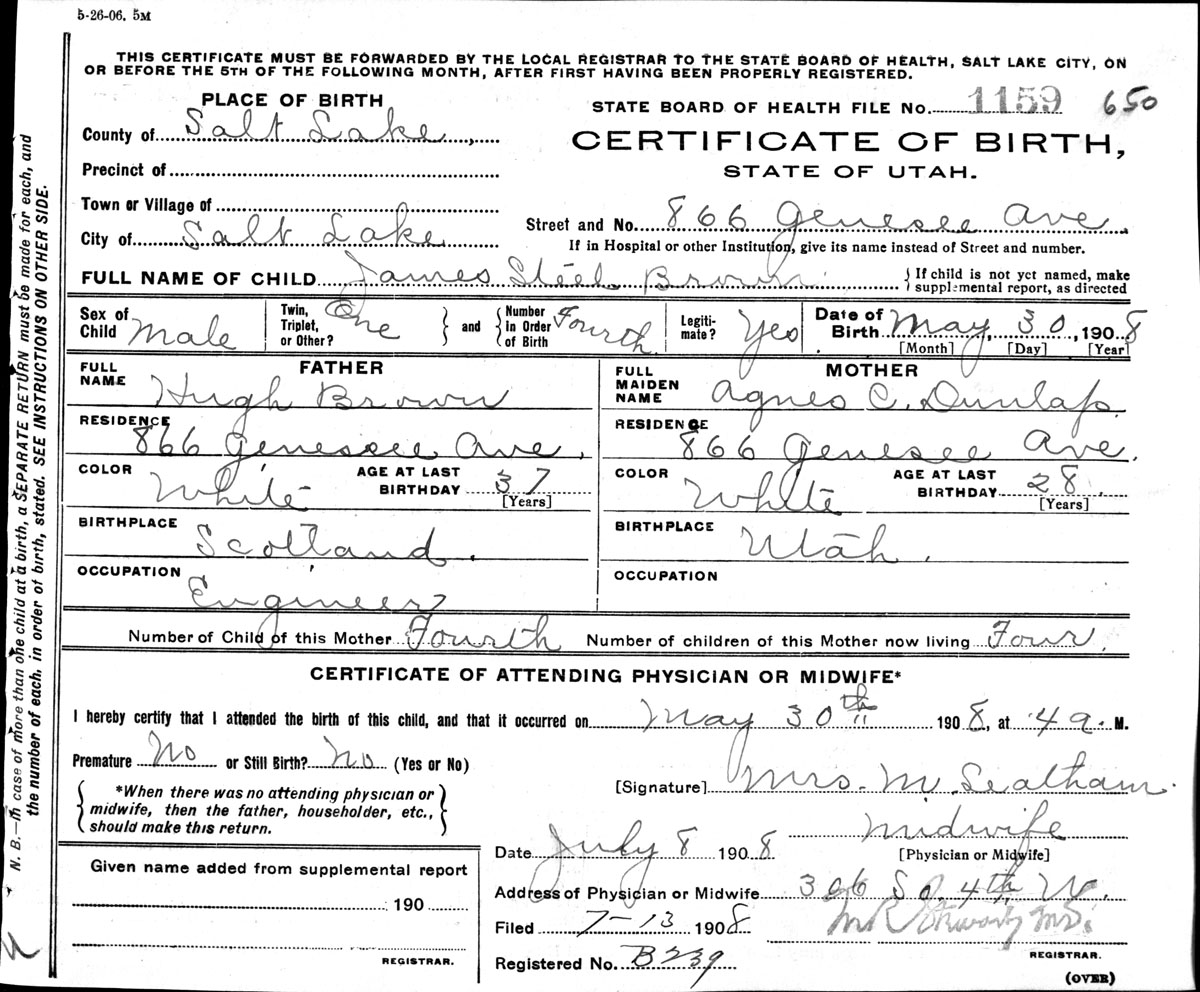 5-26-06. 5M
THIS CERTIFICATE MUST BE FORWARDED BY THE LOCAL REGISTRAR TO THE STATE BOARD OF HEALTH, SALT LAKE CITY, ON
OR BEFORE THE 5TH OF THE FOLLOWING MONTH, AFTER FIRST HAVING BEEN PROPERLY REGISTERED.
PLACE OF BIRTH
STATE BOARD OF HEALTH FILE No. 1159 650
County of Salt Lake,
CERTIFICATE OF BIRTH,
Precinct of
STATE OF UTAH.
Town or Village of
Street and No. 866 Genesee Ave.
City of Salt Lake
If in Hospital or other Institution, give its name instead of Street and number.
FULL NAME OF CHILD James Steel Brown { If child is not yet named, make
supplemental report, as directed
Sex of Child Male
Twin, Triplet, or Other? One } and { Number in Order of Birth Fourth
Legiti-mate? Yes
Date of Birth May, 30, 1908
[Month] [Day] [Year]
FATHER
FULL NAME Hugh Brown
RESIDENCE
866 Genesee Ave.
COLOR White AGE AT LAST BIRTHDAY 37
[Years]
BIRTHPLACE
Scotland.
OCCUPATION
Engineer
MOTHER
FULL MAIDEN NAME Agnes C. Dunlap.
RESIDENCE
866 Genesee Ave.
COLOR White AGE AT LAST BIRTHDAY 28.
[Years]
BIRTHPLACE
Utah.
OCCUPATION
Number of Child of this Mother Fourth Number of children of this Mother now living Four.
CERTIFICATE OF ATTENDING PHYSICIAN OR MIDWIFE*
I hereby certify that I attended the birth of this child, and that it occurred on May 30th 1908, at 4 a. M.
Premature No or Still Birth? No (Yes or No)
[Signature] Mrs. M.
{ *When there was no attending physician or
midwife, then the father, householder, etc.,
should make this return. }
Midwife
[Physician or Midwife]
Date July 8 1908
Address of Physician or Midwife 306 So. 4th W.
Filed 7-13 1908
Registered No. B239
REGISTRAR.
(OVER)
Given name added from supplemental report
190
REGISTRAR.
N. B.—In case of more than one child at a birth, a SEPARATE RETURN must be made for each, and
the number of each, in order of birth, stated. SEE INSTRUCTIONS ON OTHER SIDE.